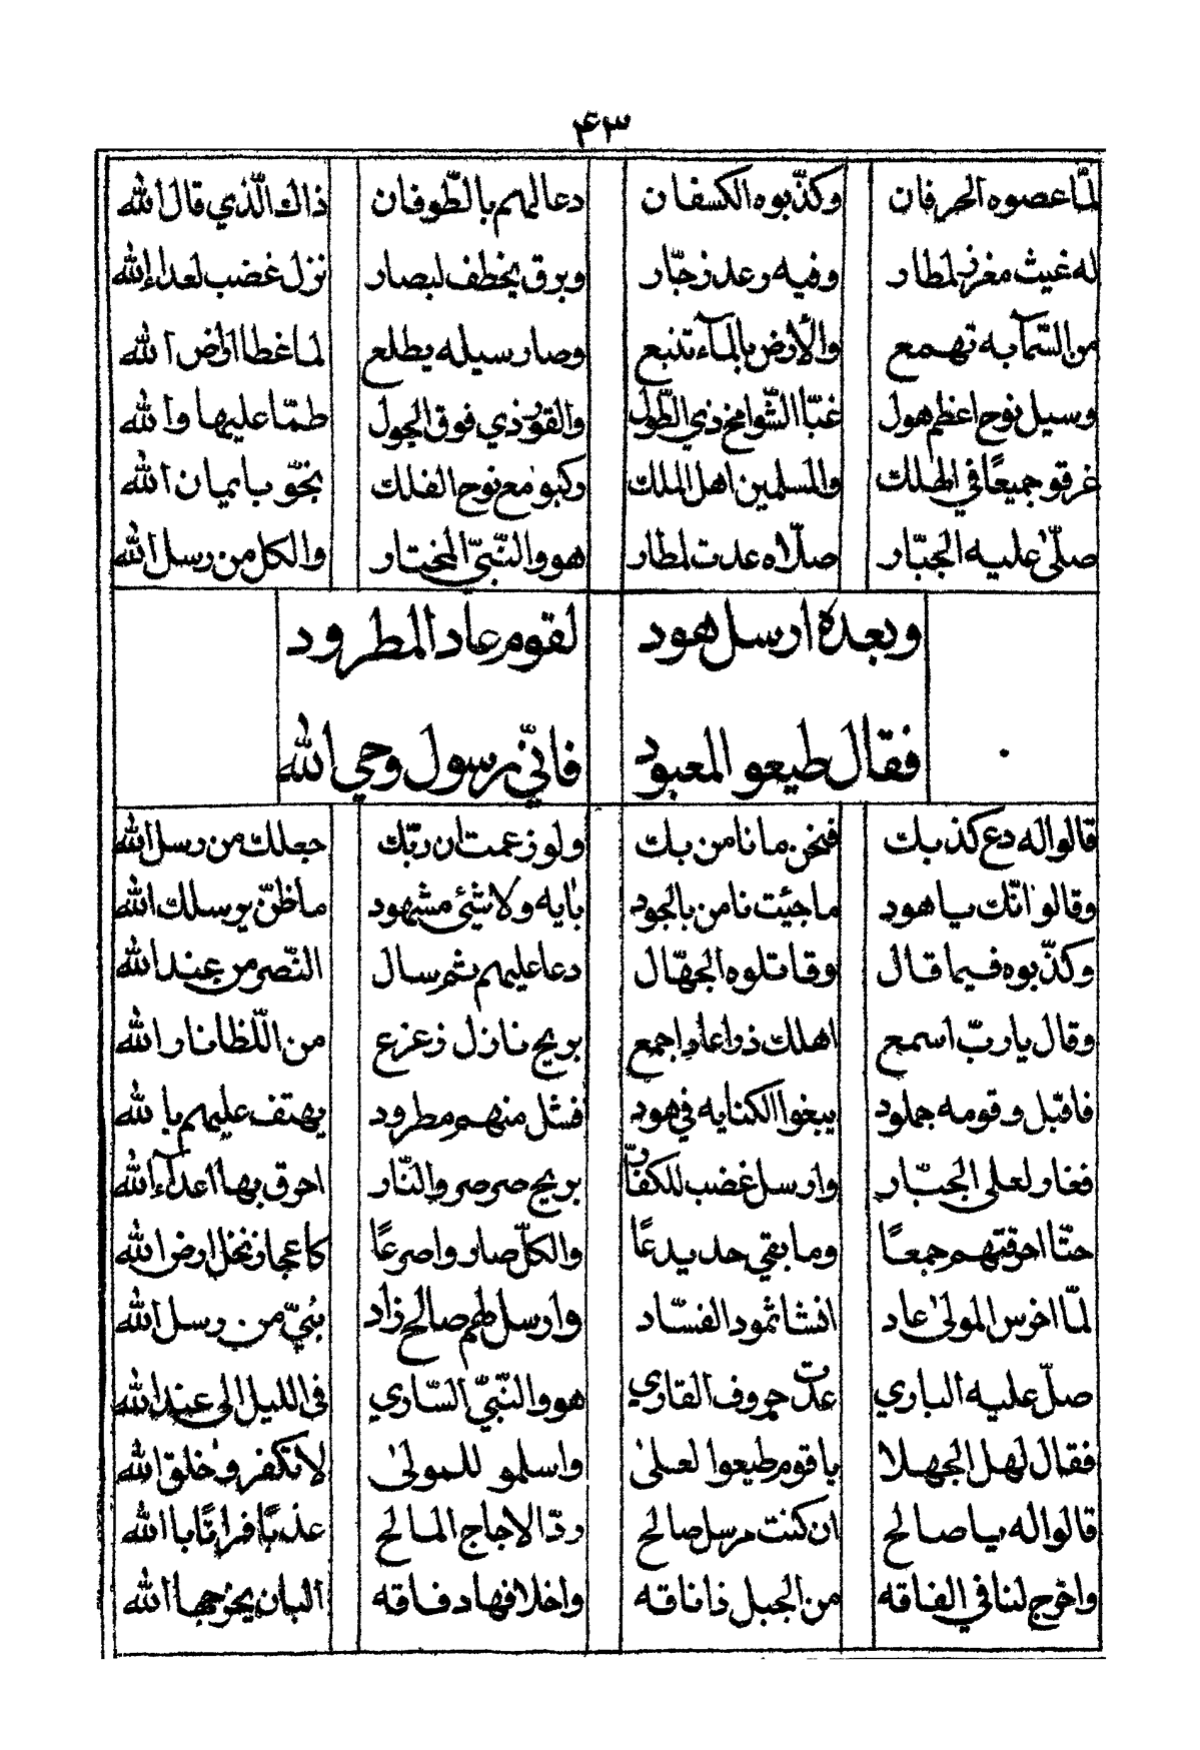 ۴۳
لمّا عصوه الحرفان وكذّبوه الكسفان دعا اليهم بالطّوفان ذاك الّذي قال الله
له غيث مغزر لمطار وفيه رعد زجّار وبرق يخطف لبصار نزل غضب لعداء الله
من السّمآ به تهمع والأرض بالمآء تنبع وصار سيله يطلع لما غطا ارض الله
وسيل نوح اعظم هول غبّا الشّوامخ ذي الطّول والقور ذي فوق الجول طمّا عليها والله
غرقو جميعًا في الهلك والمسلمين اهل الملك ركبو مع نوح الفلك نجّو بايمان الله
صلّى عليه الجبّار صلّاه عدت لمطار هو والنّبيّ المختار والكل من رسل الله
وبعده ارسل هود لقوم عاد المطرود
فقال طيعو المعبود فانّي رسول وحي الله
قالوا له دع كذبك فنحن ما نامن بك ولو زعمت ان ربّك جعلك من رسل الله
وقالوا انّك يا هود ما جيئت نامن بالجود بايه ولا شئ مشهود ما ظنّ يرسلك الله
وكذّبوه فيما قال وقاتلوه الجهّال دعا عليهم ثم سال النّصر من عند الله
وقال يا ربّ اسمع اهلك ذوا عاد اجمع بريح نازل زعزع من اللّظا نار الله
فاقبل وقومه جلود يبغوا الكنايه في هود فشل منهم مطرود يهتف عليهم بالله
فغار لعلى الجبّار وارسل غضب للكفّار بريح صرصر والنّار احرق بها اعدآء الله
حتّا احرقتهم جمعًا وما بقي حد يدعًا والكلّ صار واصرعًا كاعجاز نخل ارض الله
لمّا اخرس المولى عاد انشا ثمود الفسّاد وارسل لهم صالح زاد نبيّ من رسل الله
صلّ عليه الباري عدّت حروف القاري هو والنّبيّ السّاري في الليل الى عند الله
فقال لهل الجهلا يا قوم طيعوا لعلى واسلمو للمولى لا تكفر وخلق الله
قالوا له يا صالح ان كنت مرسل صالح ردّ الاجاج المالح عذبًا فراتًا بالله
واخرج لنا في الفاقه من الجبل ذا ناقه واخلافها دفاقه البان يخرجها الله